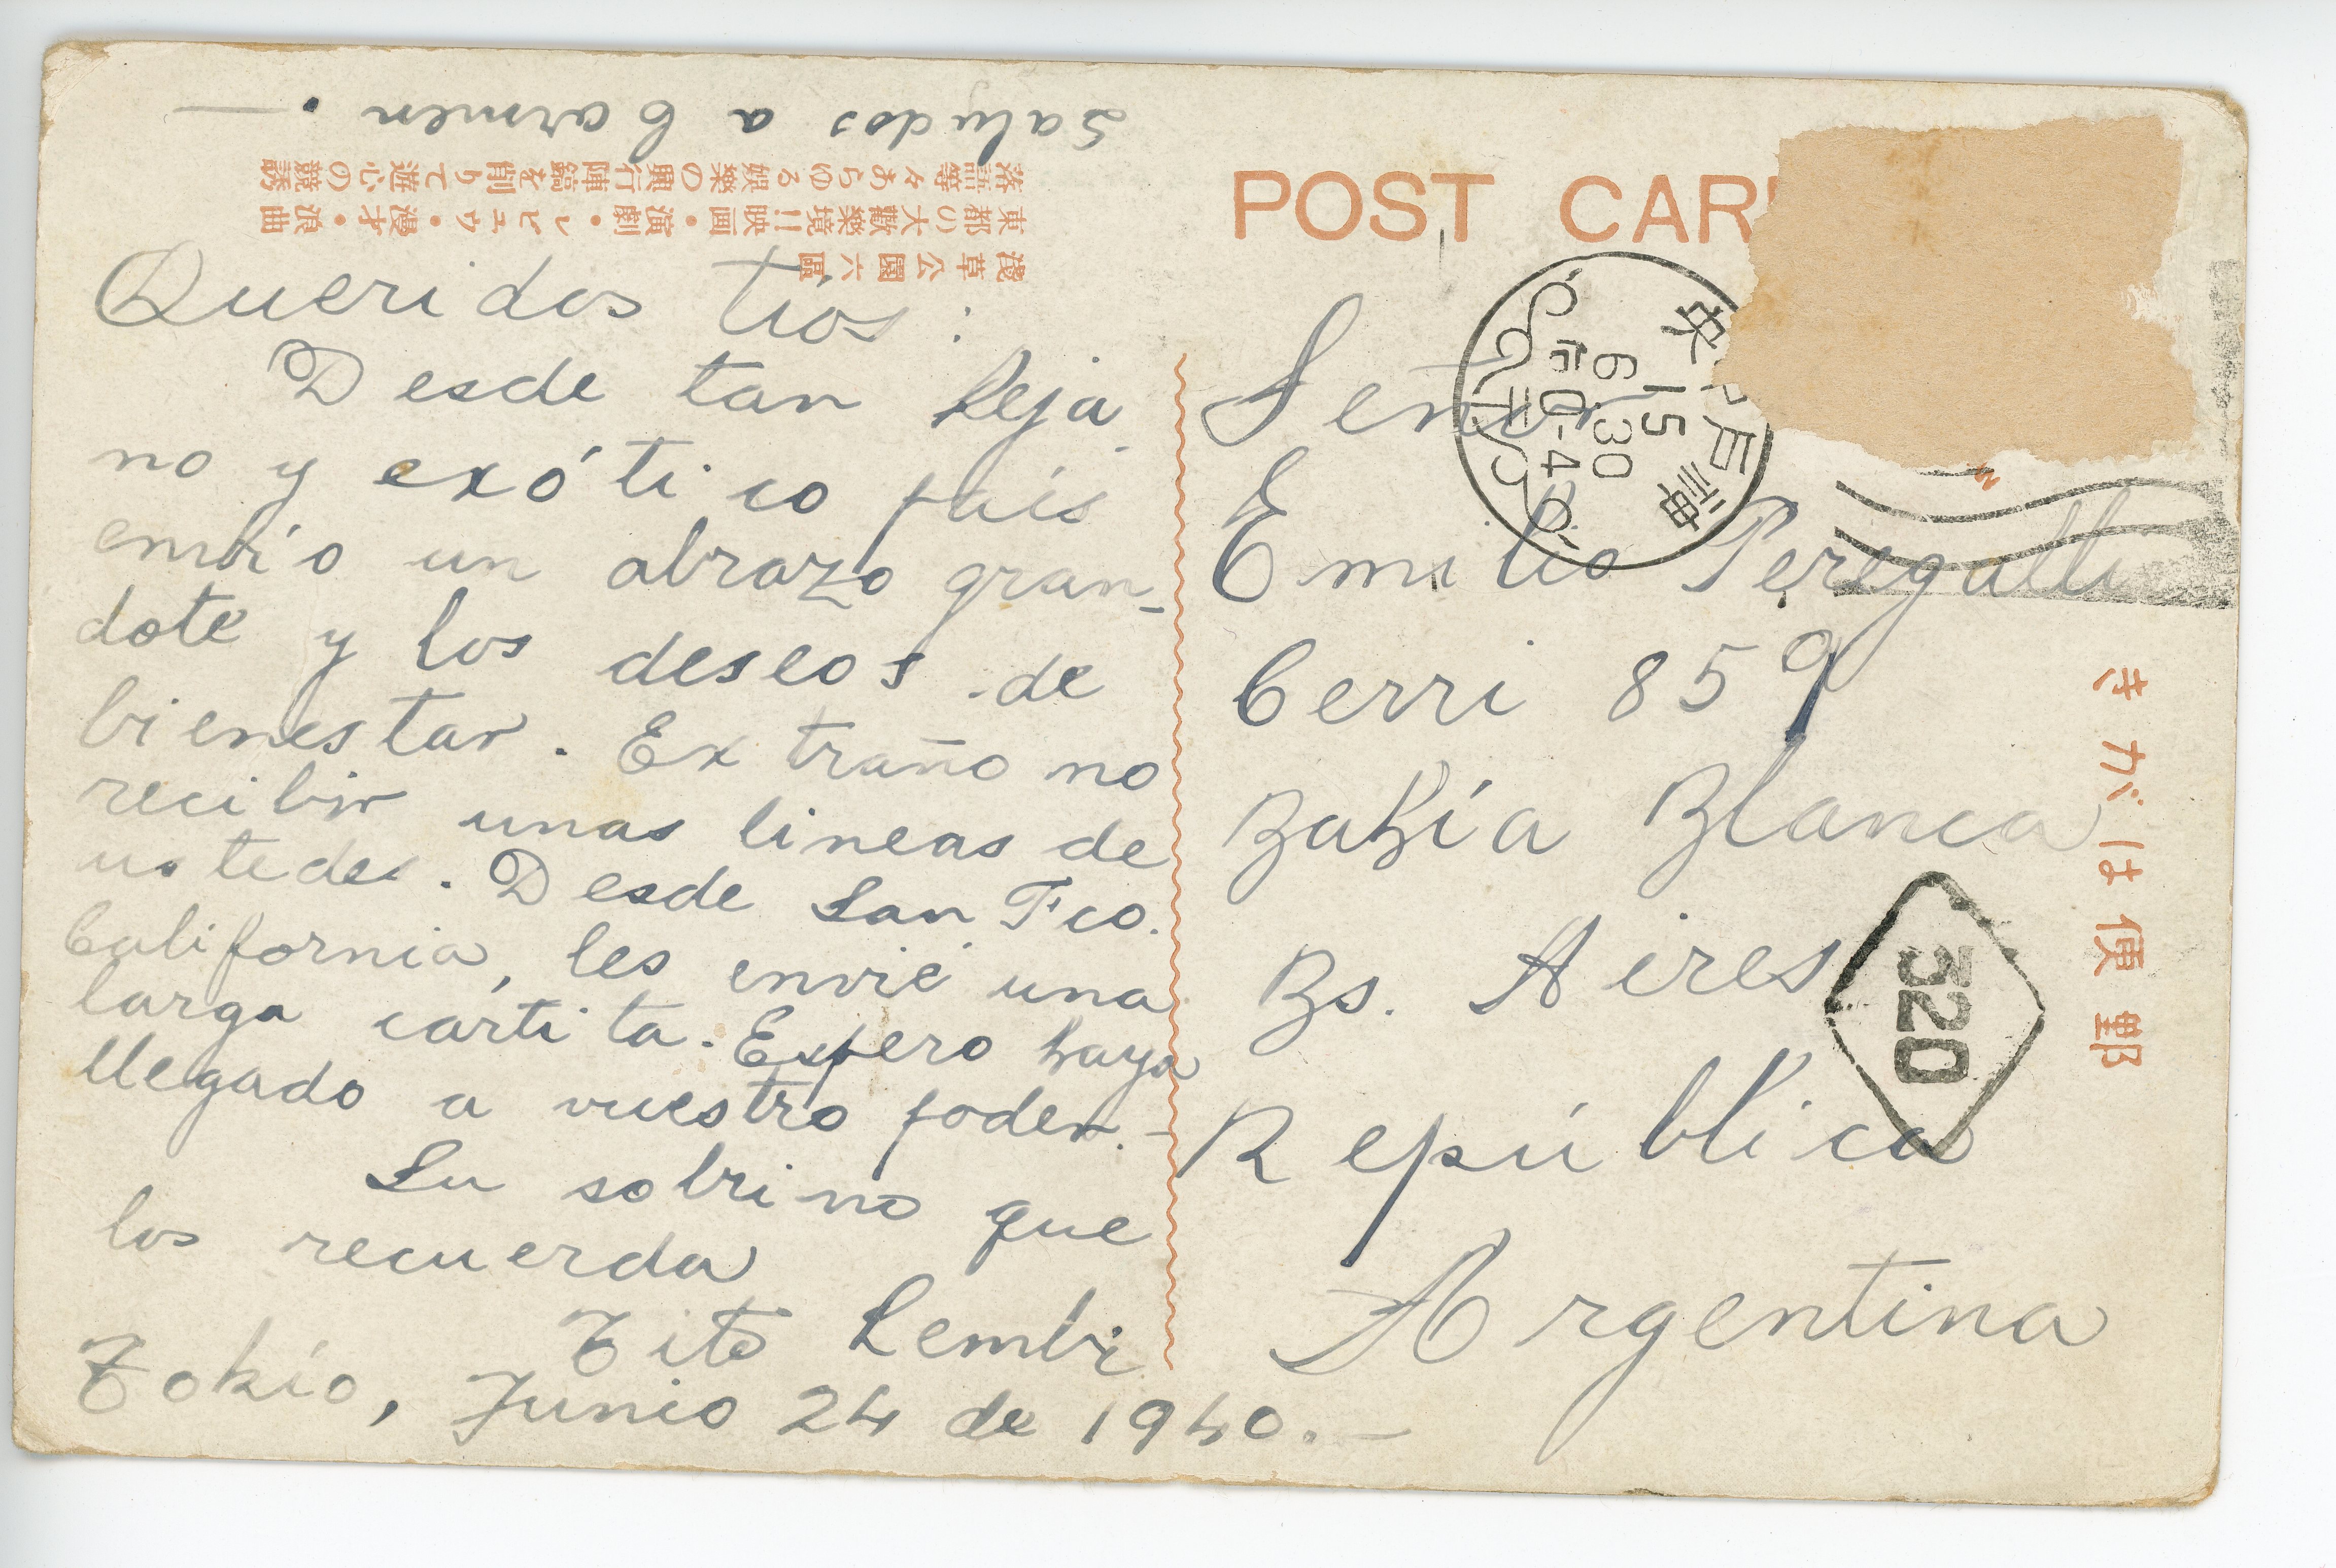 Saludos a Carmen. —
淺草公園六區
東都の大歡樂境!!映画・演劇・レビュウ・漫才・浪曲
落語等々あらゆる娯樂の興行陣鎬を削りて遊心の競誘
Queridos tíos:
Desde tan leja
no y exótico país
envío un abrazo gran-
dote y los deseos de
bienestar. Extraño no
recibir unas lineas de
ustedes. Desde San Fco.
California, les envié una
larga cartita. Espero haya
llegado a vuestro poder. —
Su sobrino que
los recuerda
Tito Lembi
Tokio, Junio 24 de 1940. —
POST CAR
神戸中央
15
6.30
后0-4
Señor
Emilio Peregalli
Cerri 859
Bahía Blanca
Bs. Aires
República
Argentina
320
きがは便郵